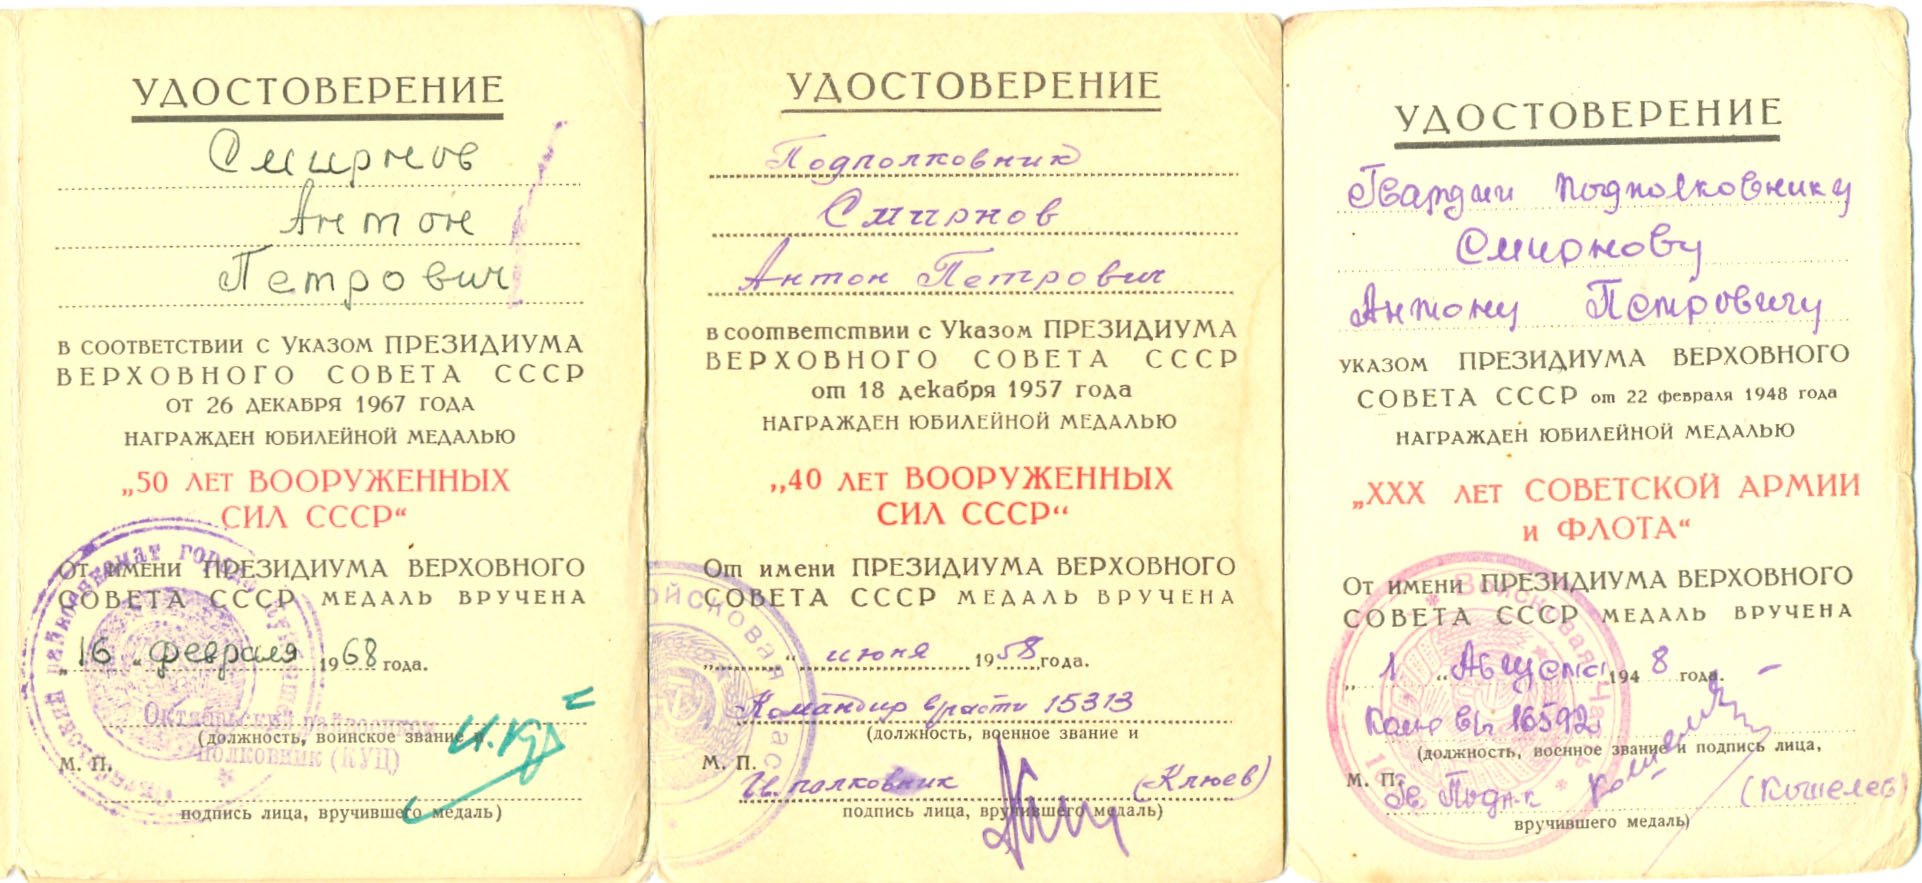 УДОСТОВЕРЕНИЕ
Смирнов
Антон
Петрович
В СООТВЕТСТВИИ С УКАЗОМ ПРЕЗИДИУМА
ВЕРХОВНОГО СОВЕТА СССР
ОТ 26 ДЕКАБРЯ 1967 ГОДА
НАГРАЖДЕН ЮБИЛЕЙНОЙ МЕДАЛЬЮ
„50 ЛЕТ ВООРУЖЕННЫХ
СИЛ СССР“
От имени ПРЕЗИДИУМА ВЕРХОВНОГО
СОВЕТА СССР МЕДАЛЬ ВРУЧЕНА
„16“ февраля 1968 года.
Октябрьский райвоенком
(должность, воинское звание и
полковник (КУЦ)
М. П.
подпись лица, вручившего медаль)
УДОСТОВЕРЕНИЕ
Подполковник
Смирнов
Антон Петрович
в соответствии с Указом ПРЕЗИДИУМА
ВЕРХОВНОГО СОВЕТА СССР
от 18 декабря 1957 года
НАГРАЖДЕН ЮБИЛЕЙНОЙ МЕДАЛЬЮ
„40 ЛЕТ ВООРУЖЕННЫХ
СИЛ СССР“
От имени ПРЕЗИДИУМА ВЕРХОВНОГО
СОВЕТА СССР МЕДАЛЬ ВРУЧЕНА
войсковая часть
„ “ июня 1958 года.
Командир в/части 15313
(должность, военное звание и
М. П.
Гв. полковник (Клюев)
подпись лица, вручившего медаль)
УДОСТОВЕРЕНИЕ
Гвардии подполковнику
Смирнову
Антону Петровичу
УКАЗОМ ПРЕЗИДИУМА ВЕРХОВНОГО
СОВЕТА СССР от 22 февраля 1948 года
НАГРАЖДЕН ЮБИЛЕЙНОЙ МЕДАЛЬЮ
„XXX ЛЕТ СОВЕТСКОЙ АРМИИ
и ФЛОТА“
От имени ПРЕЗИДИУМА ВЕРХОВНОГО
СОВЕТА СССР МЕДАЛЬ ВРУЧЕНА
Войсковая часть
„1“ Августа 1948 года.
Ком-р в/ч 16592
(должность, военное звание и подпись лица,
М. П.
Гв. Подп-к (Кошелев)
вручившего медаль)